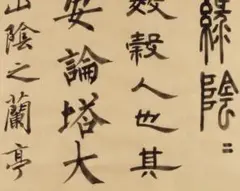 綠陰
穀人也其
論塔大
山陰之蘭亭